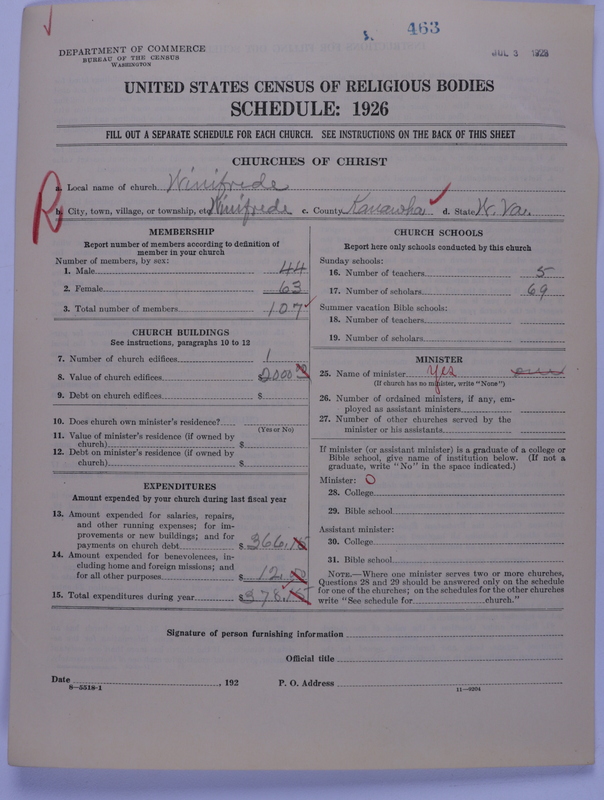 463
JUL 3 1928
DEPARTMENT OF COMMERCE
BUREAU OF THE CENSUS
WASHINGTON
UNITED STATES CENSUS OF RELIGIOUS BODIES
SCHEDULE: 1926
FILL OUT A SEPARATE SCHEDULE FOR EACH CHURCH. SEE INSTRUCTIONS ON THE BACK OF THIS SHEET
CHURCHES OF CHRIST
a. Local name of church Winifrede
b. City, town, village, or township, etc Winifrede c. County Kanawha d. State W. Va.
R
MEMBERSHIP
Report number of members according to definition of
member in your church
Number of members, by sex:
1. Male 44
2. Female 63
3. Total number of members 107
CHURCH BUILDINGS
See instructions, paragraphs 10 to 12
7. Number of church edifices 1
8. Value of church edifices 2000
9. Debt on church edifices $
10. Does church own minister's residence?
(Yes or No)
11. Value of minister's residence (if owned by
church) $
12. Debt on minister's residence (if owned by
church) $
EXPENDITURES
Amount expended by your church during last fiscal year
13. Amount expended for salaries, repairs,
and other running expenses; for im-
provements or new buildings; and for
payments on church debt $ 366.15
14. Amount expended for benevolences, in-
cluding home and foreign missions; and
for all other purposes $ 12.00
15. Total expenditures during year $ 378.15
CHURCH SCHOOLS
Report here only schools conducted by this church
Sunday schools:
16. Number of teachers 5
17. Number of scholars 69
Summer vacation Bible schools:
18. Number of teachers
19. Number of scholars
MINISTER
25. Name of minister yes
(If church has no minister, write "None")
26. Number of ordained ministers, if any, em-
ployed as assistant ministers
27. Number of other churches served by the
minister or his assistants
If minister (or assistant minister) is a graduate of a college or
Bible school, give name of institution below. (If not a
graduate, write "No" in the space indicated.)
Minister: O
28. College
29. Bible school
Assistant minister:
30. College
31. Bible school
NOTE.—Where one minister serves two or more churches,
Questions 28 and 29 should be answered only on the schedule
for one of the churches; on the schedules for the other churches
write "See schedule for church."
Signature of person furnishing information
Official title
Date , 192 P. O. Address
8—5518-1 11—9204